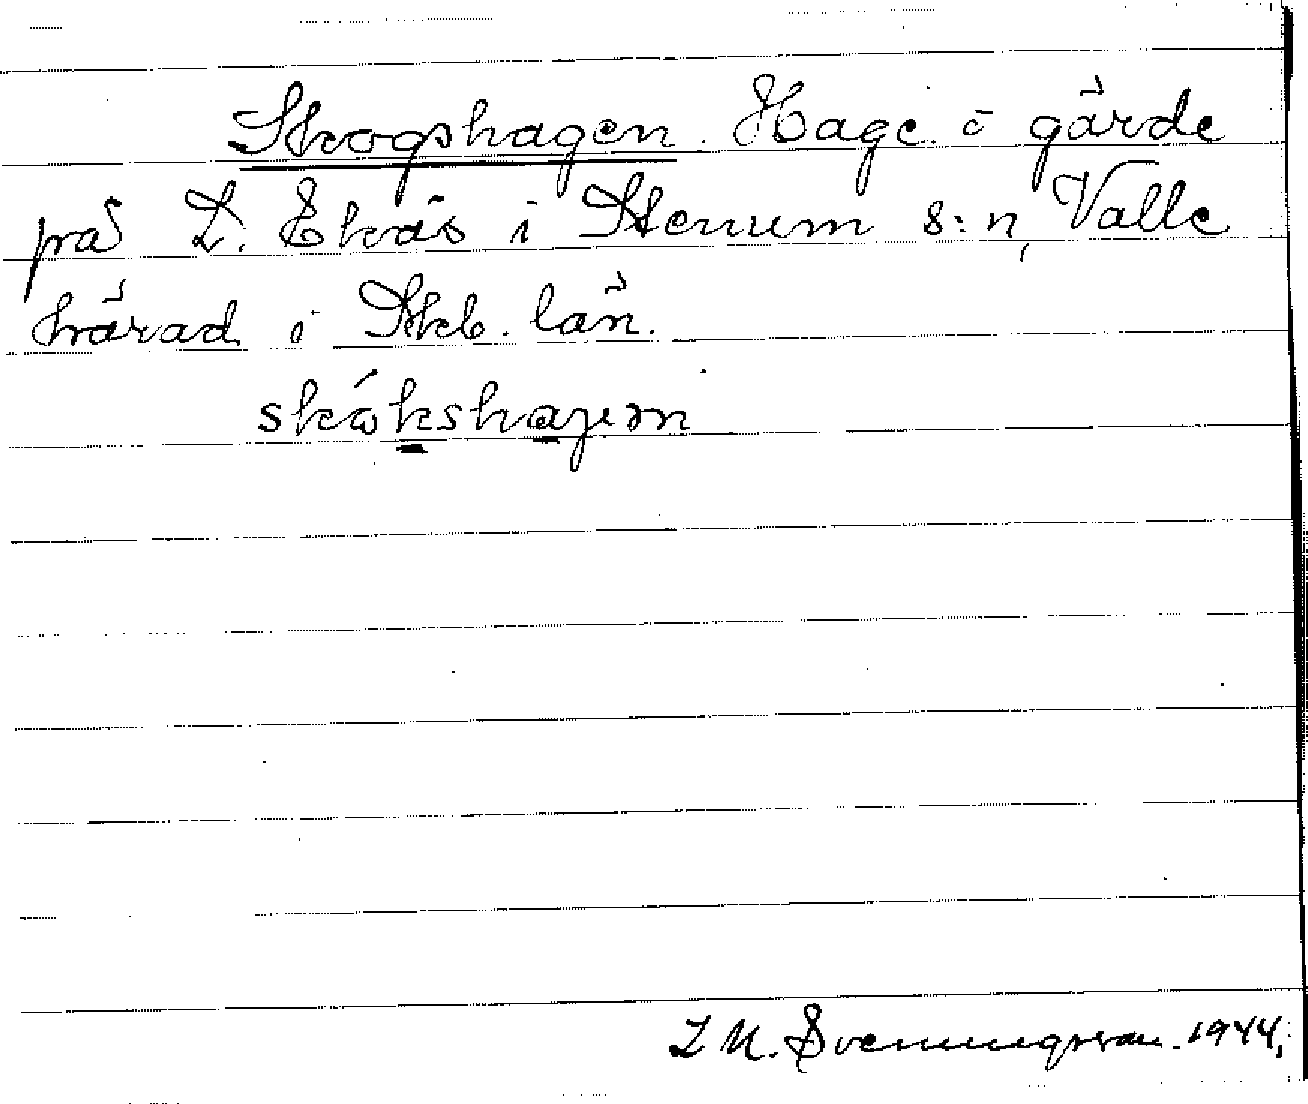 Skogshagen. Hage å gärde
på L. Ekås i Stenum s:n, Valle
härad i Skb. län.
skókshajen
L M. Svenungsson. 1944.